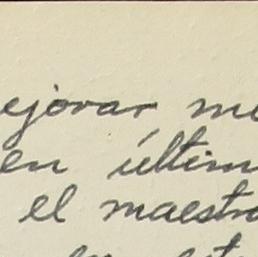 ejorar me
en últim
el maestro